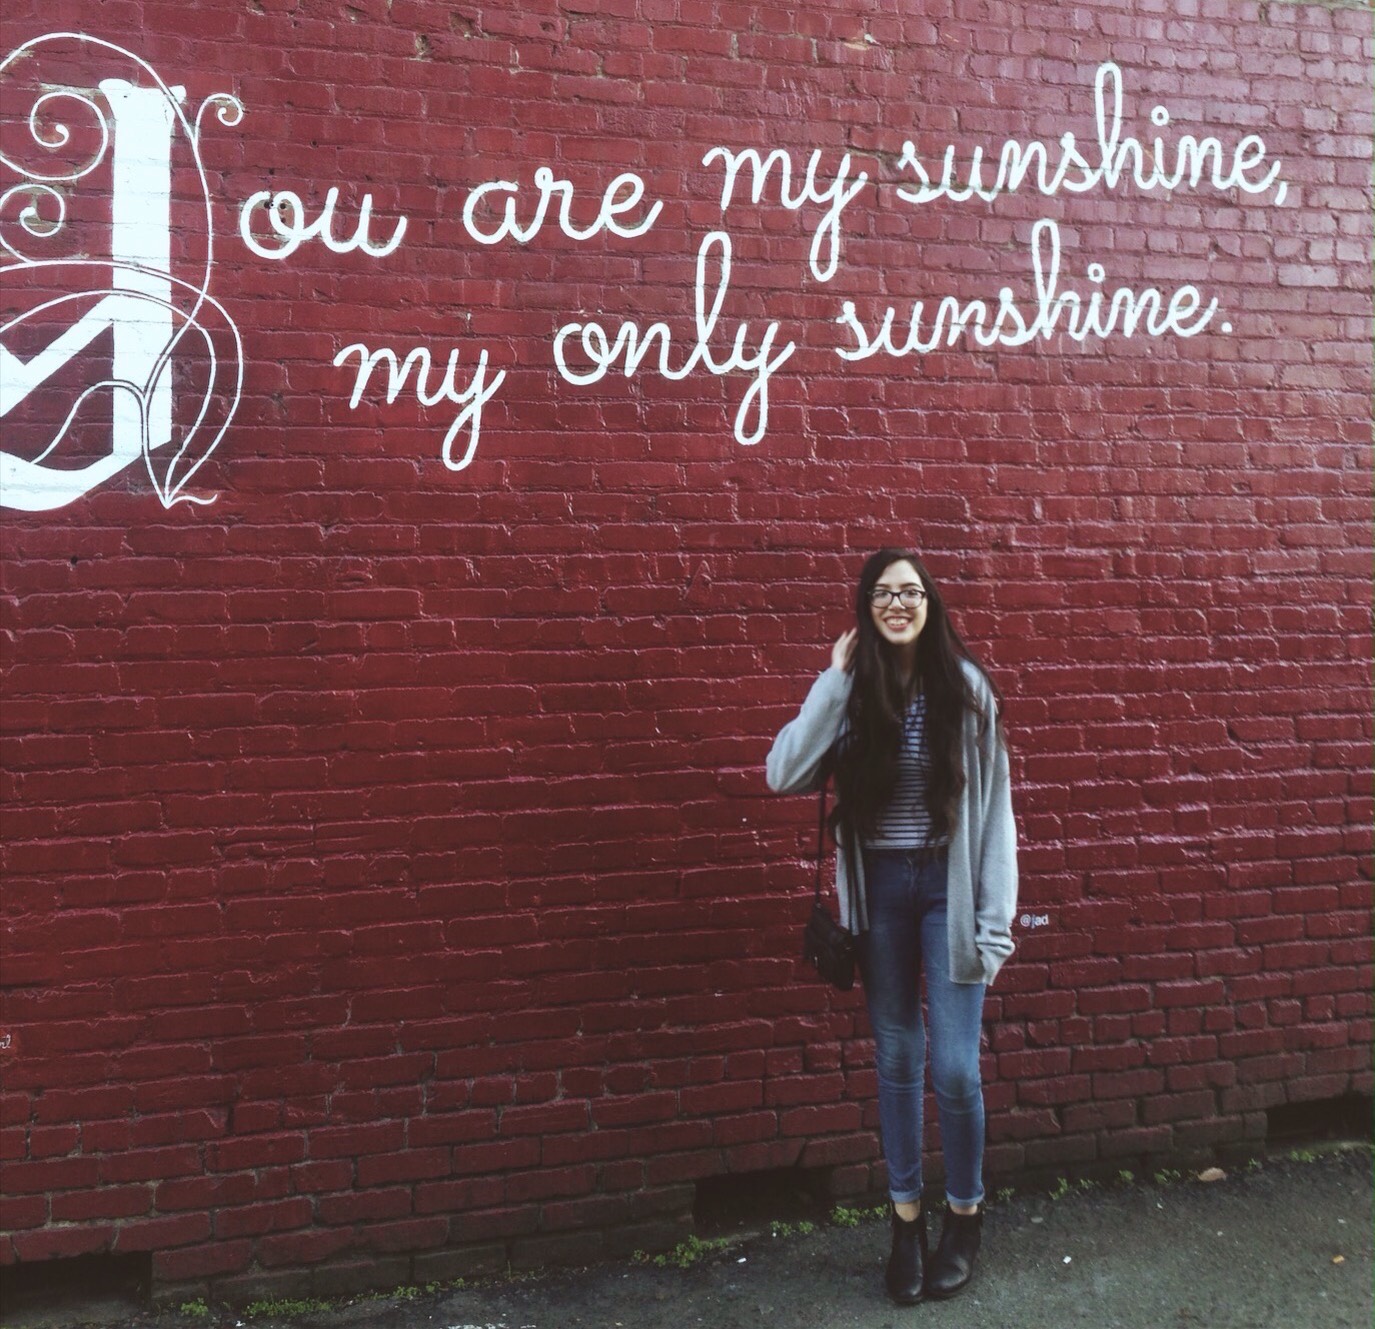 You are my sunshine,
my only sunshine.
@jad